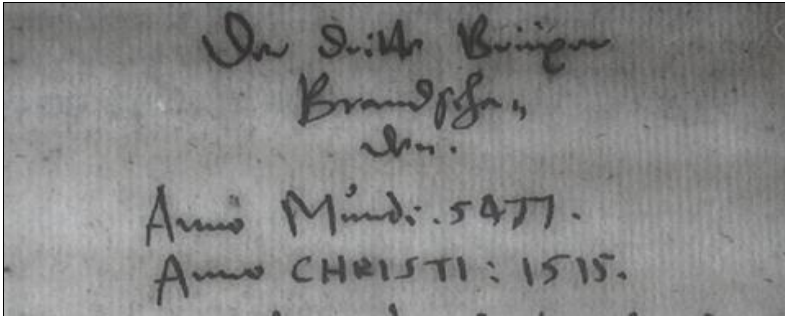 Der dritte Bringer
Brandscha,,
den.
Anno Mundi. 5477.
Anno CHRISTI: 1515.